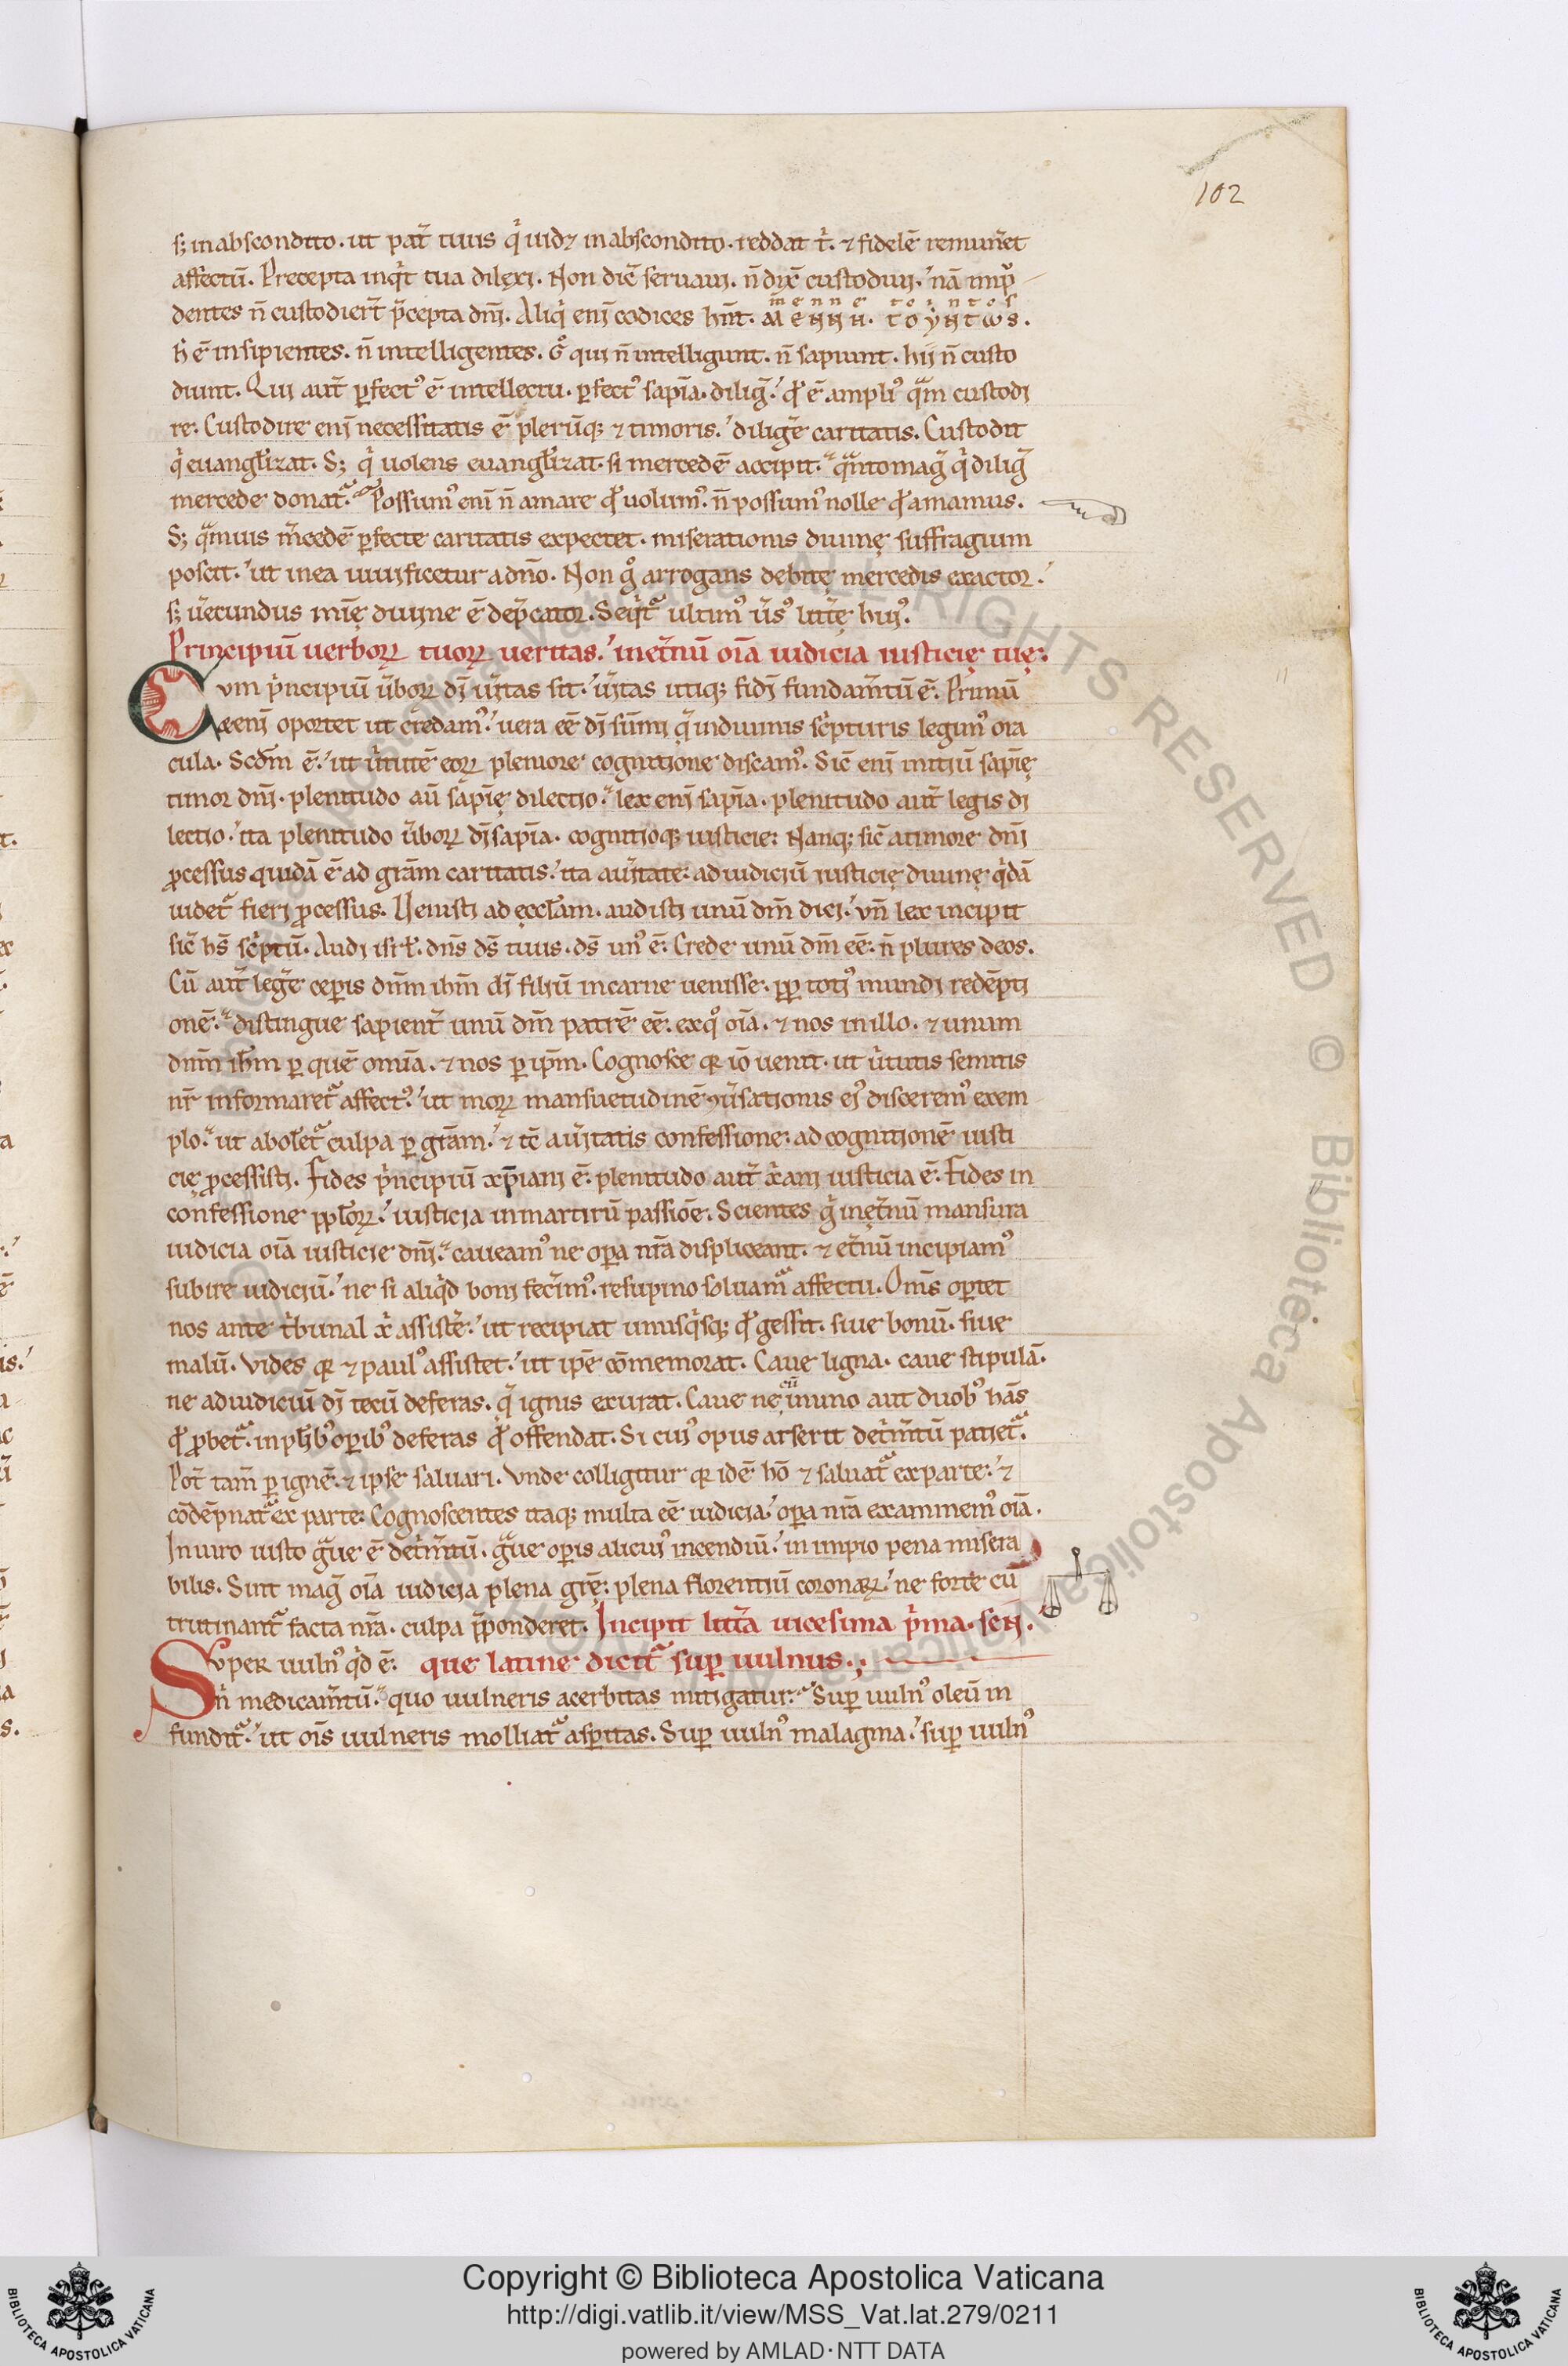 102
sꝫ in abscondito. ut pat̄ tuus qͥ uidꝫ in abscondito. reddat t̄. ⁊ fidelē remun̄et
affectū. Precepta inqͥt tua dilexi. Non dic̄ seruaui. n̄ dix̄ custodiui. nā imp̄
dentes n̄ custodier̄t p̄cepta dn̄i. Aliqͥ eni codices hn̄t.
h̄ ē insipientes. n̄ intelligentes. gͦ qui n̄ intelligunt. n̄ sapiunt. hii n̄ custo
diunt. Qui aut̄ ꝑfectꝰ ē intellectu. ꝑfectꝰ sapīa. diliḡ. qͩ ē ampliꝰ qͣm custodi
re. Custodire eni necessitatis ē plerūqꝫ ⁊ timoris. diliḡe caritatis. Custodit
qͥ euanḡlizat. Sꝫ qͥ uolens euanḡlizat. si mercedē accipit. qͣnto maḡ qͥ diliḡ
mercede donatᷓ. Possumꝰ eni n̄ amare qͩ uolumꝰ. n̄ possumꝰ nolle qͩ amamus.
Sꝫ qͣmuis m̄cedē ꝑfecte caritatis expectet. miserationis diuinę suffragium
poscit. ut in ea uiuificetur a dn̄o. Non gͦ arrogans debitę mercedis exactor.
sꝫ ū̄ecundus mīę diuine ē dep̄cator. Seqͥtᷓ ultimꝰ ūsꝰ litt̄ę huiꝰ.
Principiū uerboꝝ tuoꝝ ueritas. in et̄nū oīa iudicia iusticię tuę.
Cvm pͥncipiū ūboꝝ dī ūitas sit. ūitas utiqꝫ fidī fundam̄tū ē. Primū
eni oportet ut credamꝰ. uera eē dī sūmi qͣ in diuinis scͥpturis legimꝰ ora
cula. Scd̄m ē. ut ūtutē eoꝝ pleniore cognitione discamꝰ. Sic̄ eni initiū sapīę
timor dn̄i. plenitudo aū sapīę dilectio. lex eni sapīa. plenitudo aut̄ legis di
lectio. ita plenitudo ūboꝝ dī sapīa. cognitioqꝫ iusticie. Nanqꝫ sic̄ a timore dn̄i
ꝓcessus quidā ē ad grām caritatis. ita a ūitate. ad iudiciū iusticię diuinę qͥdā
uidet̄ fieri ꝓcessus. Uenisti ad ęccl̄am. audisti unū dm̄ dici. vn̄ lex incipit
sic̄ hs̄ scͥptū. Audi isrl̄. dn̄s ds̄ tuus. ds̄ unꝰ ē. Crede unū dm̄ eē. n̄ plures deos.
Cū aut̄ leḡe ceꝑis dn̄m ihm̄ dī filiū in carne uenisse. ꝓp̄ totiꝰ mundi redēpti
onē. distingue sapient̄ unū dm̄ patrē eē. ex qͦ oīa. ⁊ nos in illo. ⁊ unum
dn̄m ihm̄ ꝑ quē omīa. ⁊ nos ꝑ ipm̄. Cognosce qꝛ iō uenit. ut ūtutis semitis
nr̄ informaretᷓ affectꝰ. ut moꝝ mansuetudinē ꝯūsationis eiꝰ disceremꝰ exem
plo. ut aboletᷓ culpa ꝑ grām. ⁊ tc̄ a ūitatis confessione. ad cognitionē iusti
cię ꝓcessisti. Fides pͥncipiū xp̄iani ē. plenitudo aut̄ xͥani iusticia ē. Fides in
confessione ppl̄oꝝ. iusticia in martirū passiōe. Scientes gͥ in ęt̄nū mansura
iudicia oīa iusticie dn̄i. caueamꝰ ne oꝑa nr̄a displiceant. ⁊ et̄nū incipiamꝰ
subire iudiciū. ne si aliqͥd boni fec̄imꝰ. resupino soluamᷓ affectu. Om̄s oꝑtet
nos ante tͥbunal xͥ assist̄e. ut recipiat unusqͥsqꝫ qͩ gessit. siue bonū. siue
malū. Vides qꝛ ⁊ paulꝰ assistet. ut ip̄e cōmemorat. Caue ligna. caue stipulā.
ne ad iudiciū dī tecū deferas. qͣ ignis exurat. Caue ne cū in uno aut duobꝰ hās
qͩ ꝓbetᷓ. in plībꝰ oꝑibꝰ deferas qͩ offendat. Si cuiꝰ opus arserit detͥm̄tū patietᷓ.
Pot̄ tam̄ ꝑ ignē. ⁊ ipse saluari. Vnde colligitur qꝛ idē hō ⁊ saluatᷓ ex parte. ⁊
cōdēpnatᷓ ex parte. Cognoscentes itaqꝫ multa eē iudicia. oꝑa nr̄a examinemꝰ oīa.
In uiro iusto gͣue ē detͥm̄tū. gͣue oꝑis alicuiꝰ incendiū. in impio pena misera
bilis. Sint maḡ oīa iudicia plena grę̄. plena florentiū coronaꝝ. ne forte cū
trutinantᷓ facta nr̄a. culpa p̄ponderet. Incipit litt̄a uicesima pͥma. sen.
Svper uulnꝰ qͥd ē. que latine dicitᷓ suꝑ uulnus.
nͥ medicam̄tū. quo uulneris acerbitas mitigatur. Suꝑ uulnꝰ oleū in
funditᷓ. ut oīs uulneris molliatᷓ asꝑitas. Suꝑ uulnꝰ malagma. suꝑ uulnꝰ
ALL RIGHTS RESERVED © Biblioteca Apostolica Vaticana
Copyright © Biblioteca Apostolica Vaticana
http://digi.vatlib.it/view/MSS_Vat.lat.279/0211
powered by AMLAD·NTT DATA
BIBLIOTECA APOSTOLICA VATICANA
BIBLIOTECA APOSTOLICA VATICANA